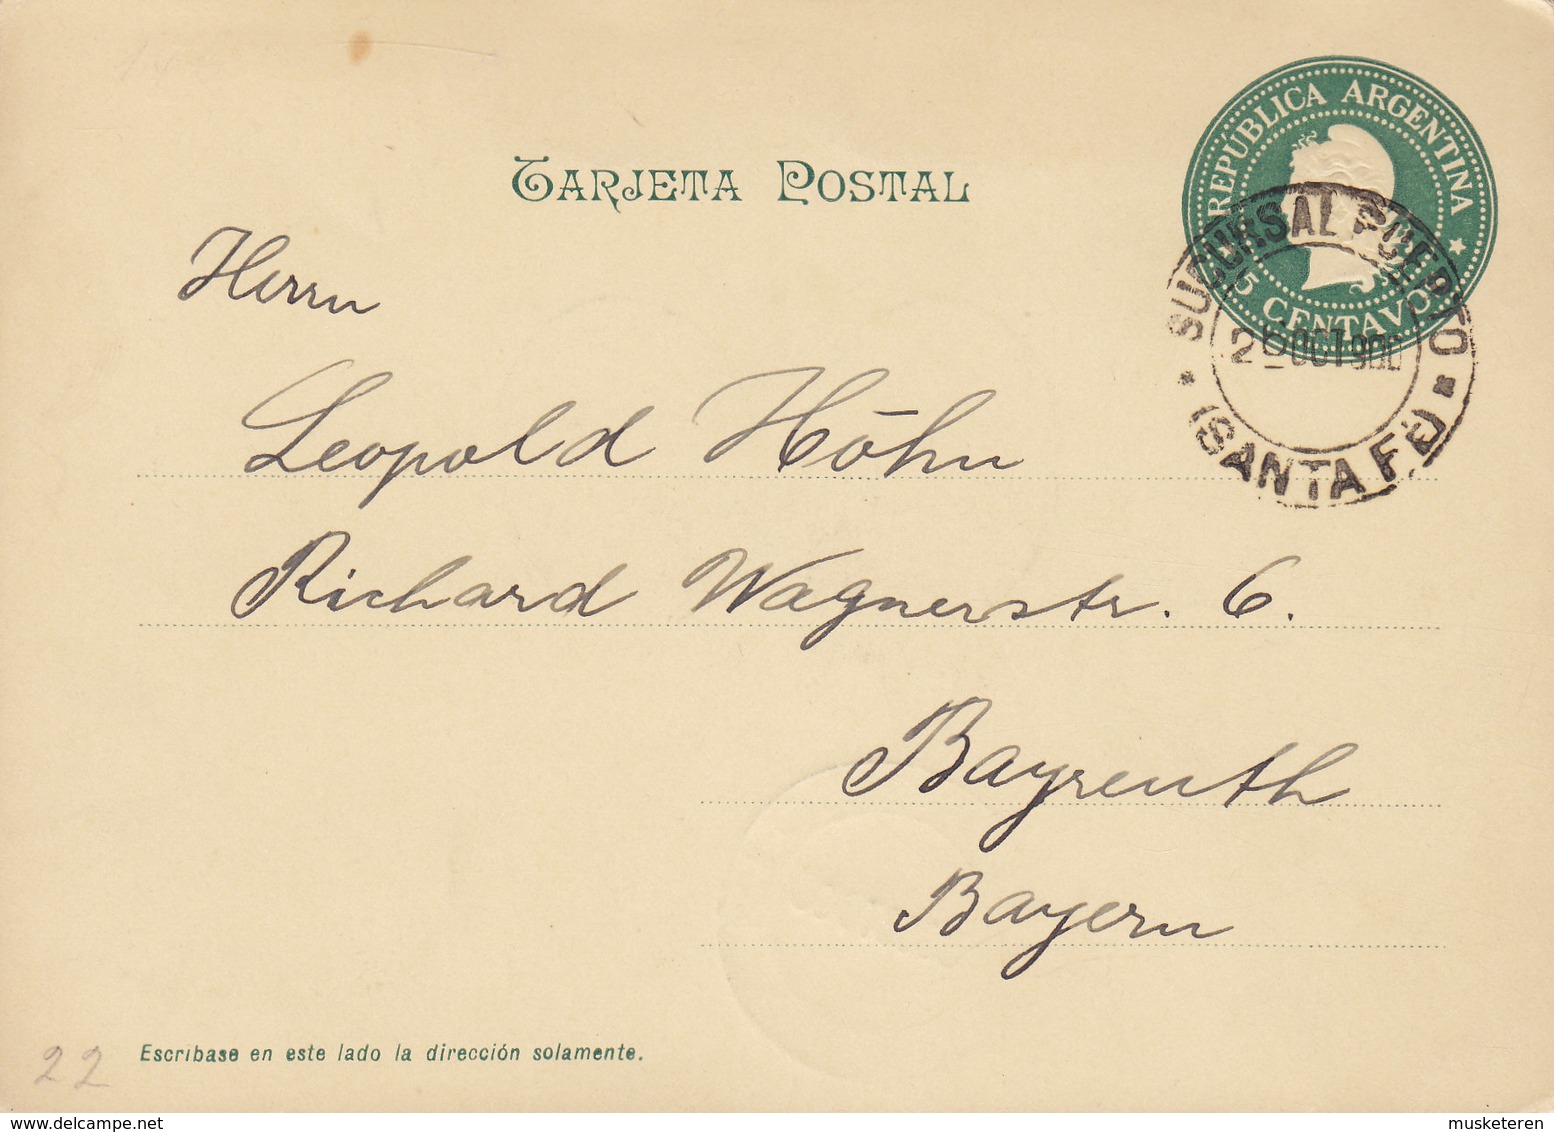 REPUBLICA ARGENTINA
5 CENTAVOS
TARJETA POSTAL
SUCURSAL PUERTO
OCT 900
(SANTA FÉ)
Herrn
Leopold Höhn
Richard Wagnerstr. 6.
Bayreuth
Bayern
Escríbase en este lado la dirección solamente.
22
musketeren